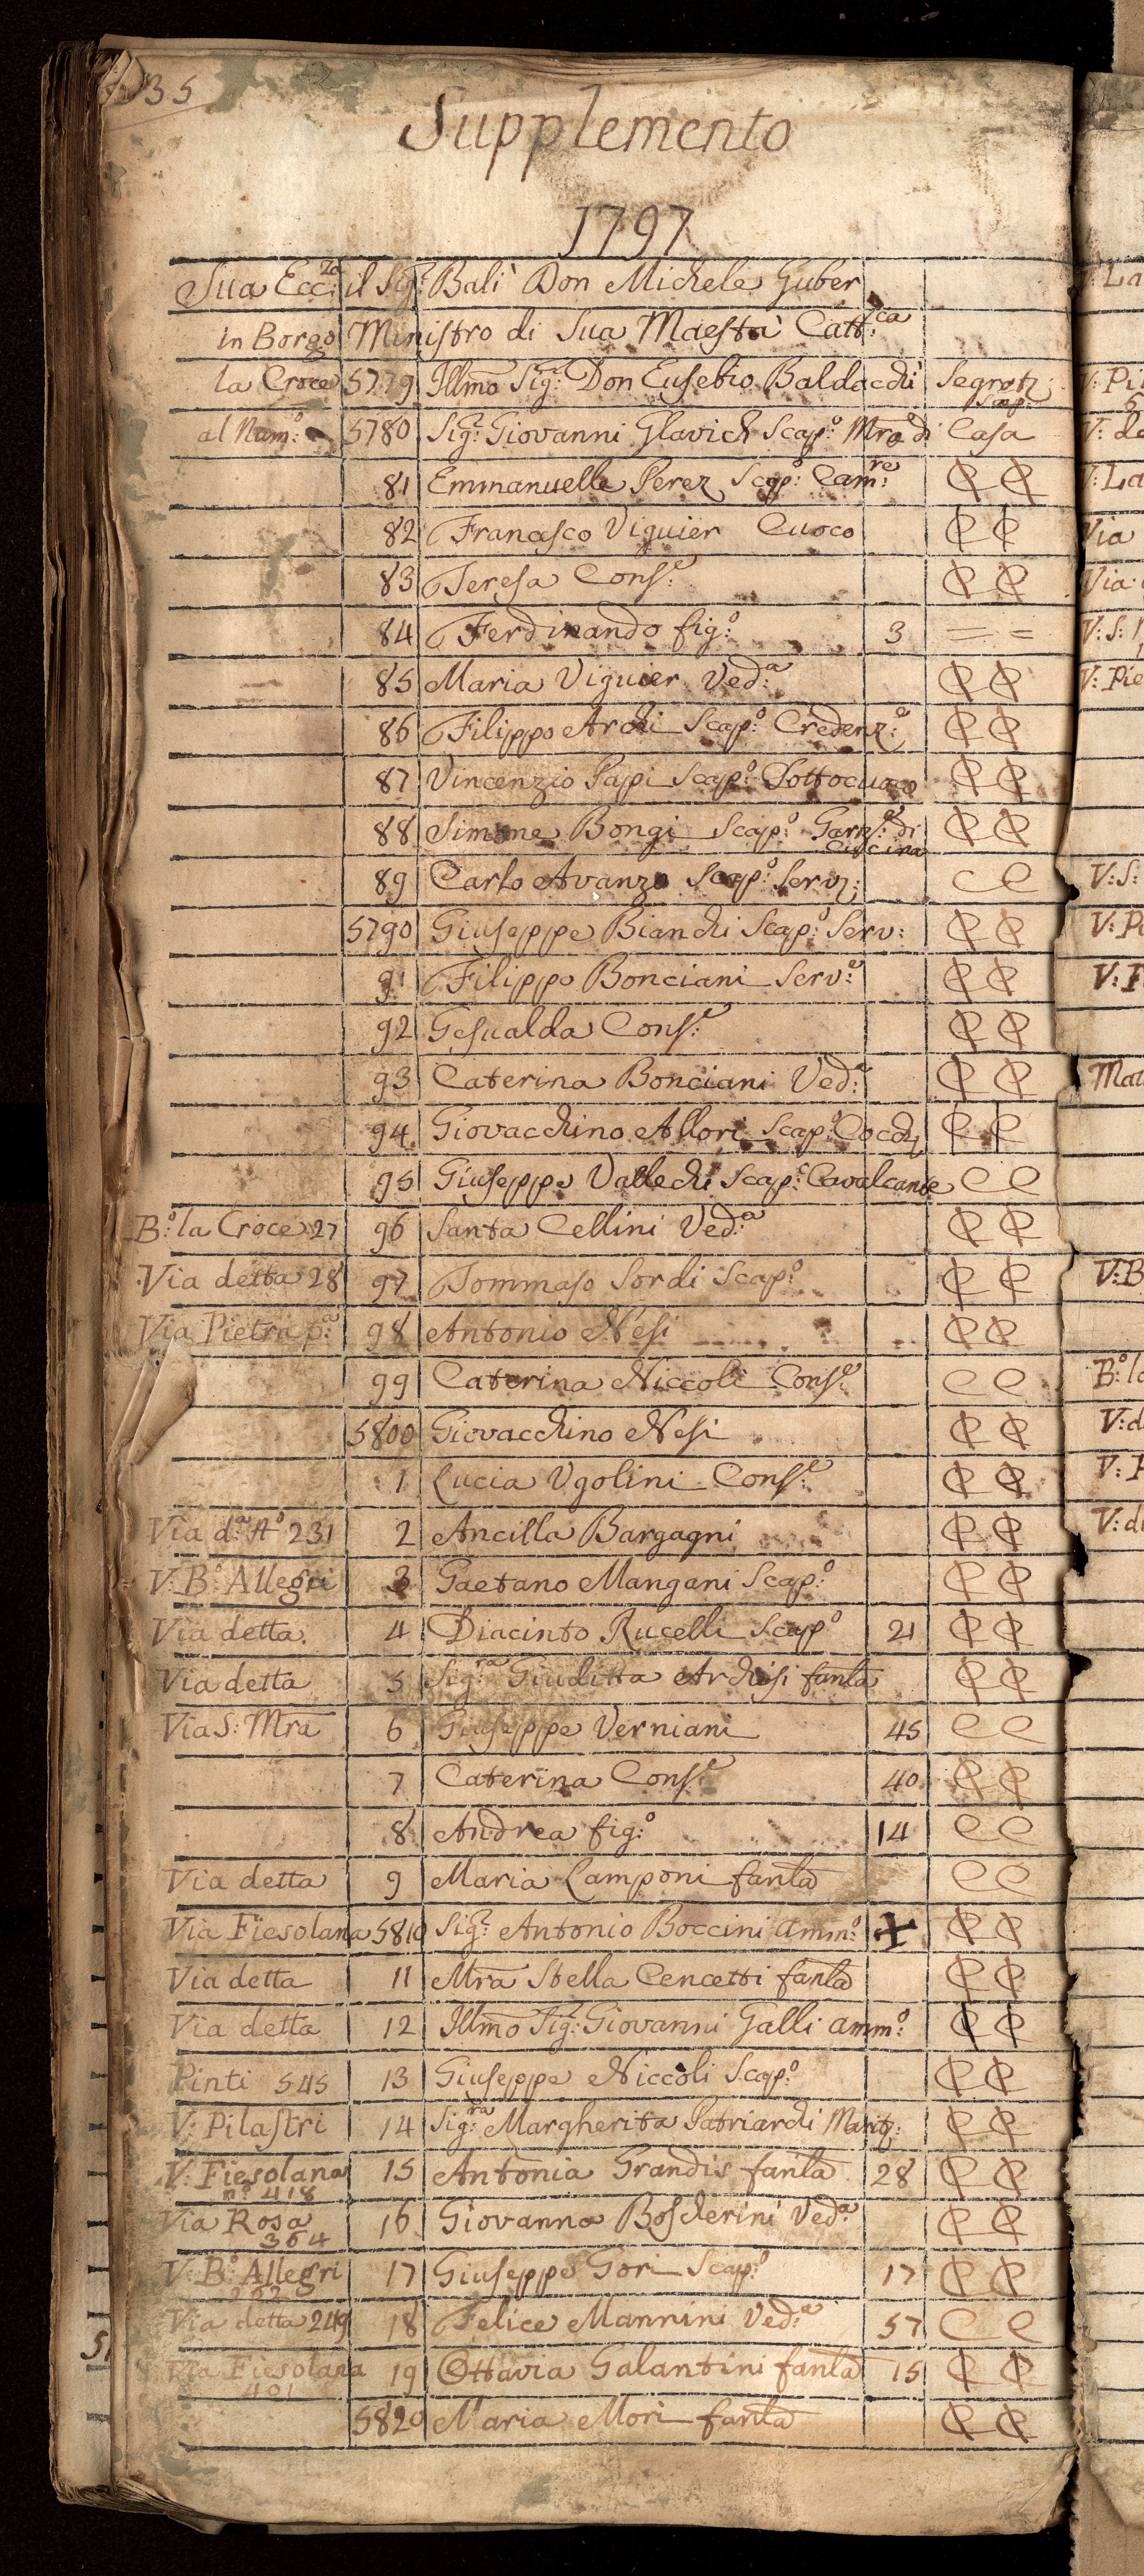 35
Supplemento
1797
Sua Ecc:za il Sig:r Balì Don Michele Guber
in Borgo Ministro di Sua Maestà Catt:ca
la Croce 5779 Illmo Sig:r Don Eusebio Baldacchi Segret: Scap:
al Num:o 5780 Sig:r Giovanni Glavich Scap:o Mro di Casa
81 Emmanuelle Perez Scap:o Cam:re
82 Francesco Viguier Cuoco
83 Teresa Cons:e
84 Ferdinando fig:o 3 = =
85 Maria Viguier Ved:a
86 Filippo Archi Scap:o Credenz:e
87 Vincenzio Papi Scap:o Sottocuoco
88 Simone Bongi Scap:o Garz:e di Cucina
89 Carlo Avanzo Scap:o Serv: C C
5790 Giuseppe Bianchi Scap:o Serv:
91 Filippo Bonciani Serv:e
92 Gesualda Cons:e
93 Caterina Bonciani Ved:a
94 Giovacchino Allori Scap:o Cocch:
95 Giuseppe Vallechi Scap:o Cavalcante C C
B:o la Croce 27 96 Santa Cellini Ved:a
Via detta 28 97 Tommaso Sordi Scap:o
Via Pietra p:a 98 Antonio Nesi
99 Caterina Niccoli Cons:e C C
5800 Giovacchino Nesi
1 Lucia Ugolini Cons:e
Via d:a A:o 231 2 Ancilla Bargagni
V: B:o Allegri 3 Gaetano Mangani Scap:o
Via detta 4 Diacinto Rucelli Scap:o 21
Via detta 5 Sig:ra Giuditta Archisi fanla
Via S: Mra 6 Giuseppe Verniani 45 C C
7 Caterina Cons:e 40
8 Andrea fig:o 14 C C
Via detta 9 Maria Lamponi fanla C C
Via Fiesolana 5810 Sig:r Antonio Boccini amm:o +
Via detta 11 Mra Stella Cencetti fanla
Via detta 12 Illmo Sig:r Giovanni Galli amm:o
Pinti 545 13 Giuseppe Niccoli Scap:o
V: Pilastri 14 Sig:ra Margherita Patriarchi Marit:
V: Fiesolana n:o 418 15 Antonia Grandis fanla 28
Via Rosa 364 16 Giovanna Boscherini Ved:a
V: B:o Allegri 17 Giuseppe Gori Scap:o 17
Via detta 249 18 Felice Mannini Ved:a 57 C C
Via Fiesolana 401 19 Ottavia Galantini fanla 15
5820 Maria Mori fanla